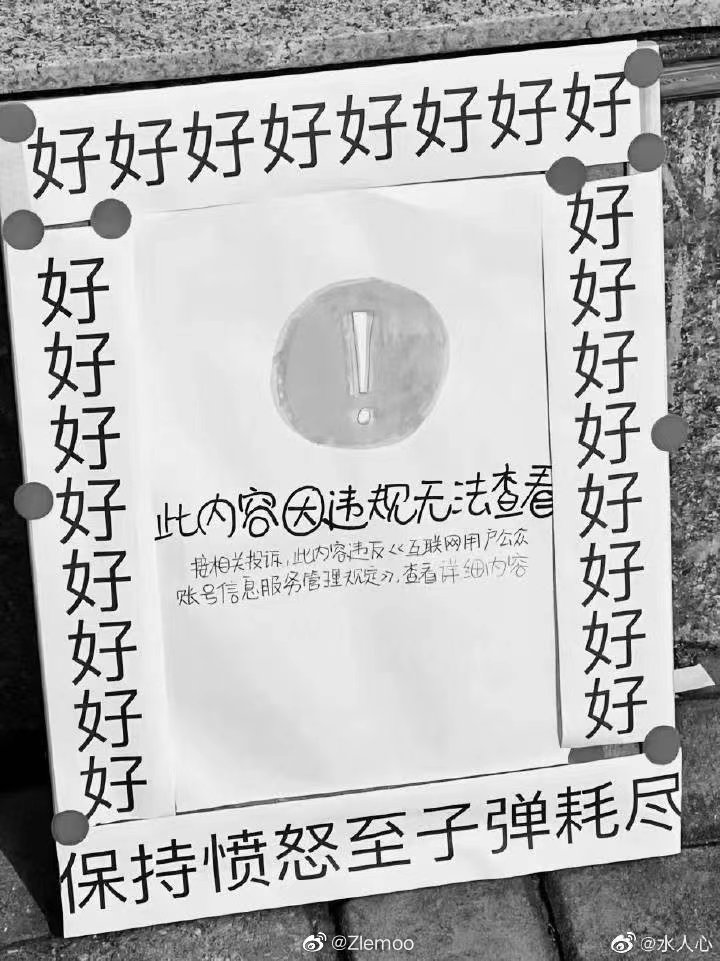 好好好好好好好好
好好好好好好好好
此内容因违规无法查看
接相关投诉,此内容违反《互联网用户公众
账号信息服务管理规定》,查看详细内容
好好好好好好好好
保持愤怒至子弹耗尽
@Zlemoo
@水人心